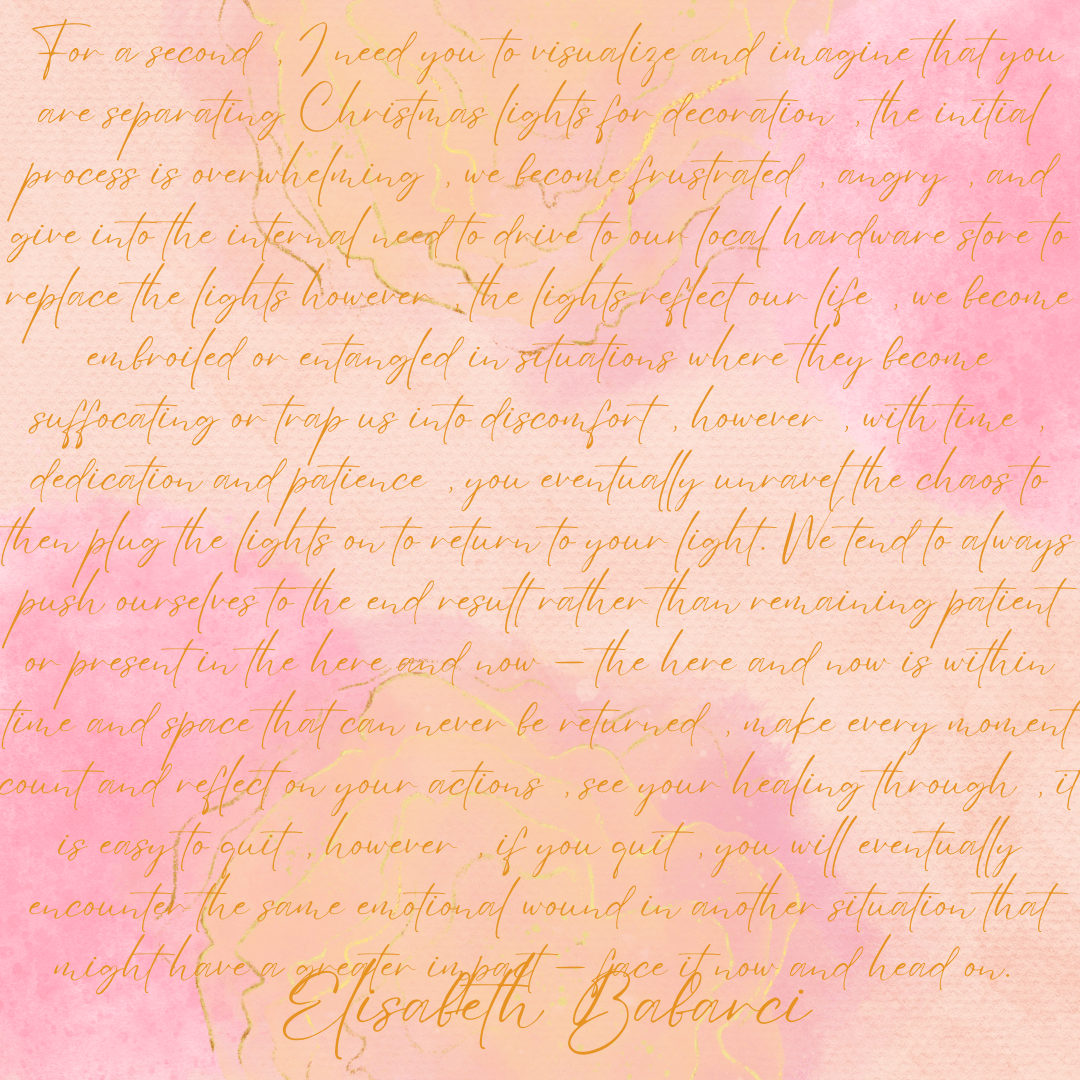 For a second , I need you to visualize and imagine that you
are separating Christmas lights for decoration , the initial
process is overwhelming , we become frustrated , angry , and
give into the internal need to drive to our local hardware store to
replace the lights however , the lights reflect our life , we become
embroiled or entangled in situations where they become
suffocating or trap us into discomfort , however , with time ,
dedication and patience , you eventually unravel the chaos to
then plug the lights on to return to your light. We tend to always
push ourselves to the end result rather than remaining patient
or present in the here and now – the here and now is within
time and space that can never be returned , make every moment
count and reflect on your actions , see your healing through , it
is easy to quit , however , if you quit , you will eventually
encounter the same emotional wound in another situation that
might have a greater impact – face it now and head on.
Elisabeth Babarci